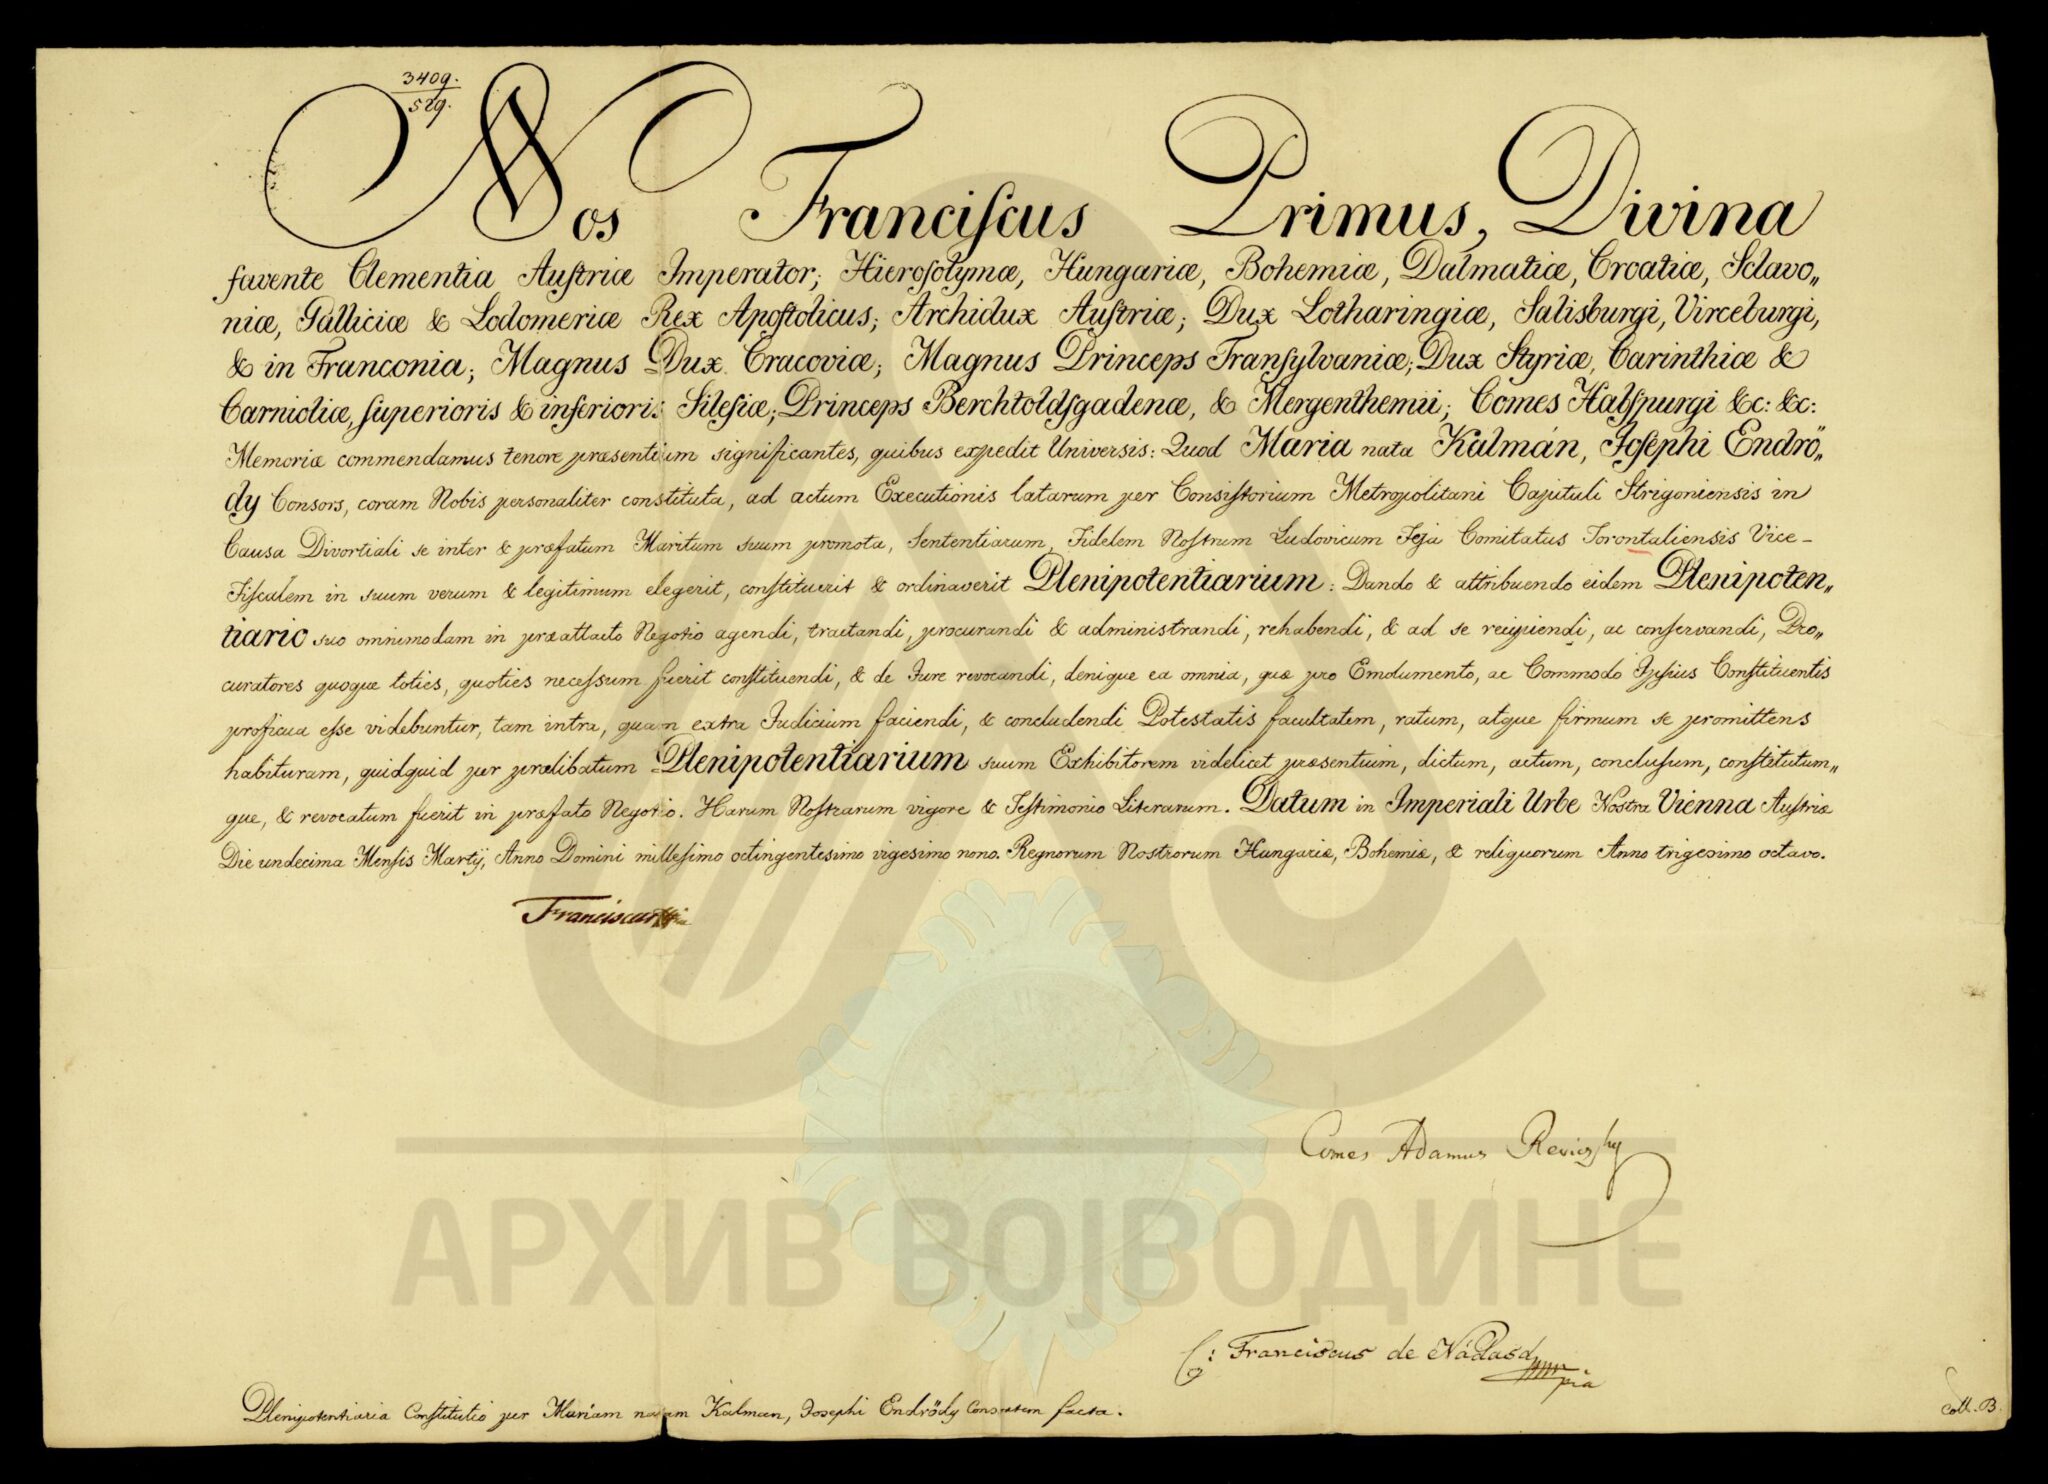 3409.
529.
Nos Franciscus Primus, Divina
favente Clementia Austriæ Imperator; Hierosolymæ, Hungariæ, Bohemiæ, Dalmatiæ, Croatiæ, Sclavo„
niæ, Galliciæ & Lodomeriæ Rex Apostolicus; Archidux Austriæ; Dux Lotharingiæ, Salisburgi, Virceburgi,
& in Franconia; Magnus Dux Cracoviæ; Magnus Princeps Transylvaniæ; Dux Styriæ, Carinthiæ &
Carnioliæ, superioris & inferioris Silesiæ; Princeps Berchtoldsgadenæ, & Mergenthemii; Comes Habspurgi &c: &c:
Memoriæ commendamus tenore præsentium significantes, quibus expedit Universis: Quod Maria nata Kalmán, Josephi Endrö„
dy Consors, coram Nobis personaliter constituta, ad actum Executionis latarum per Consistorium Metropolitani Capituli Strigoniensis in
Causa Divortiali se inter & præfatum Maritum suum promota, Sententiarum, Fidelem Nostrum Ludovicum Feja Comitatus Torontaliensis Vice-
Fiscalem in suum verum & legitimum elegerit, constituerit & ordinaverit Plenipotentiarium: Dando & attribuendo eidem Plenipoten„
tiario suo omnimodam in præattacto Negotio agendi, tractandi, procurandi & administrandi, rehabendi, & ad se recipiendi, ac conservandi, Pro„
curatores quoque toties, quoties necessum fuerit constituendi, & de Jure revocandi, denique ea omnia, quæ pro Emolumento, ac Commodo Ipsius Constituentis
proficua esse videbuntur, tam intra, quam extra Judicium faciendi, & concludendi Potestatis facultatem, ratum, atque firmum se promittens
habituram, quidquid per prælibatum Plenipotentiarium suum Exhibitorem videlicet præsentium, dictum, actum, conclusum, constitutum„
que, & revocatum fuerit in præfato Negotio. Harum Nostrarum vigore & Testimonio Literarum. Datum in Imperiali Urbe Nostra Vienna Austriæ
Die undecima Mensis Martij, Anno Domini millesimo octingentesimo vigesimo nono. Regnorum Nostrorum Hungariæ, Bohemiæ, & reliquorum Anno trigesimo octavo.
Franciscus
Comes Adamus Reviczky
АРХИВ ВОЈВОДИНЕ
C: Franciscus de Nádasd
mpia
Plenipotentiaria Constitutio per Mariam natam Kalman, Josephi Endrödy Consortem facta.
Coll. B.